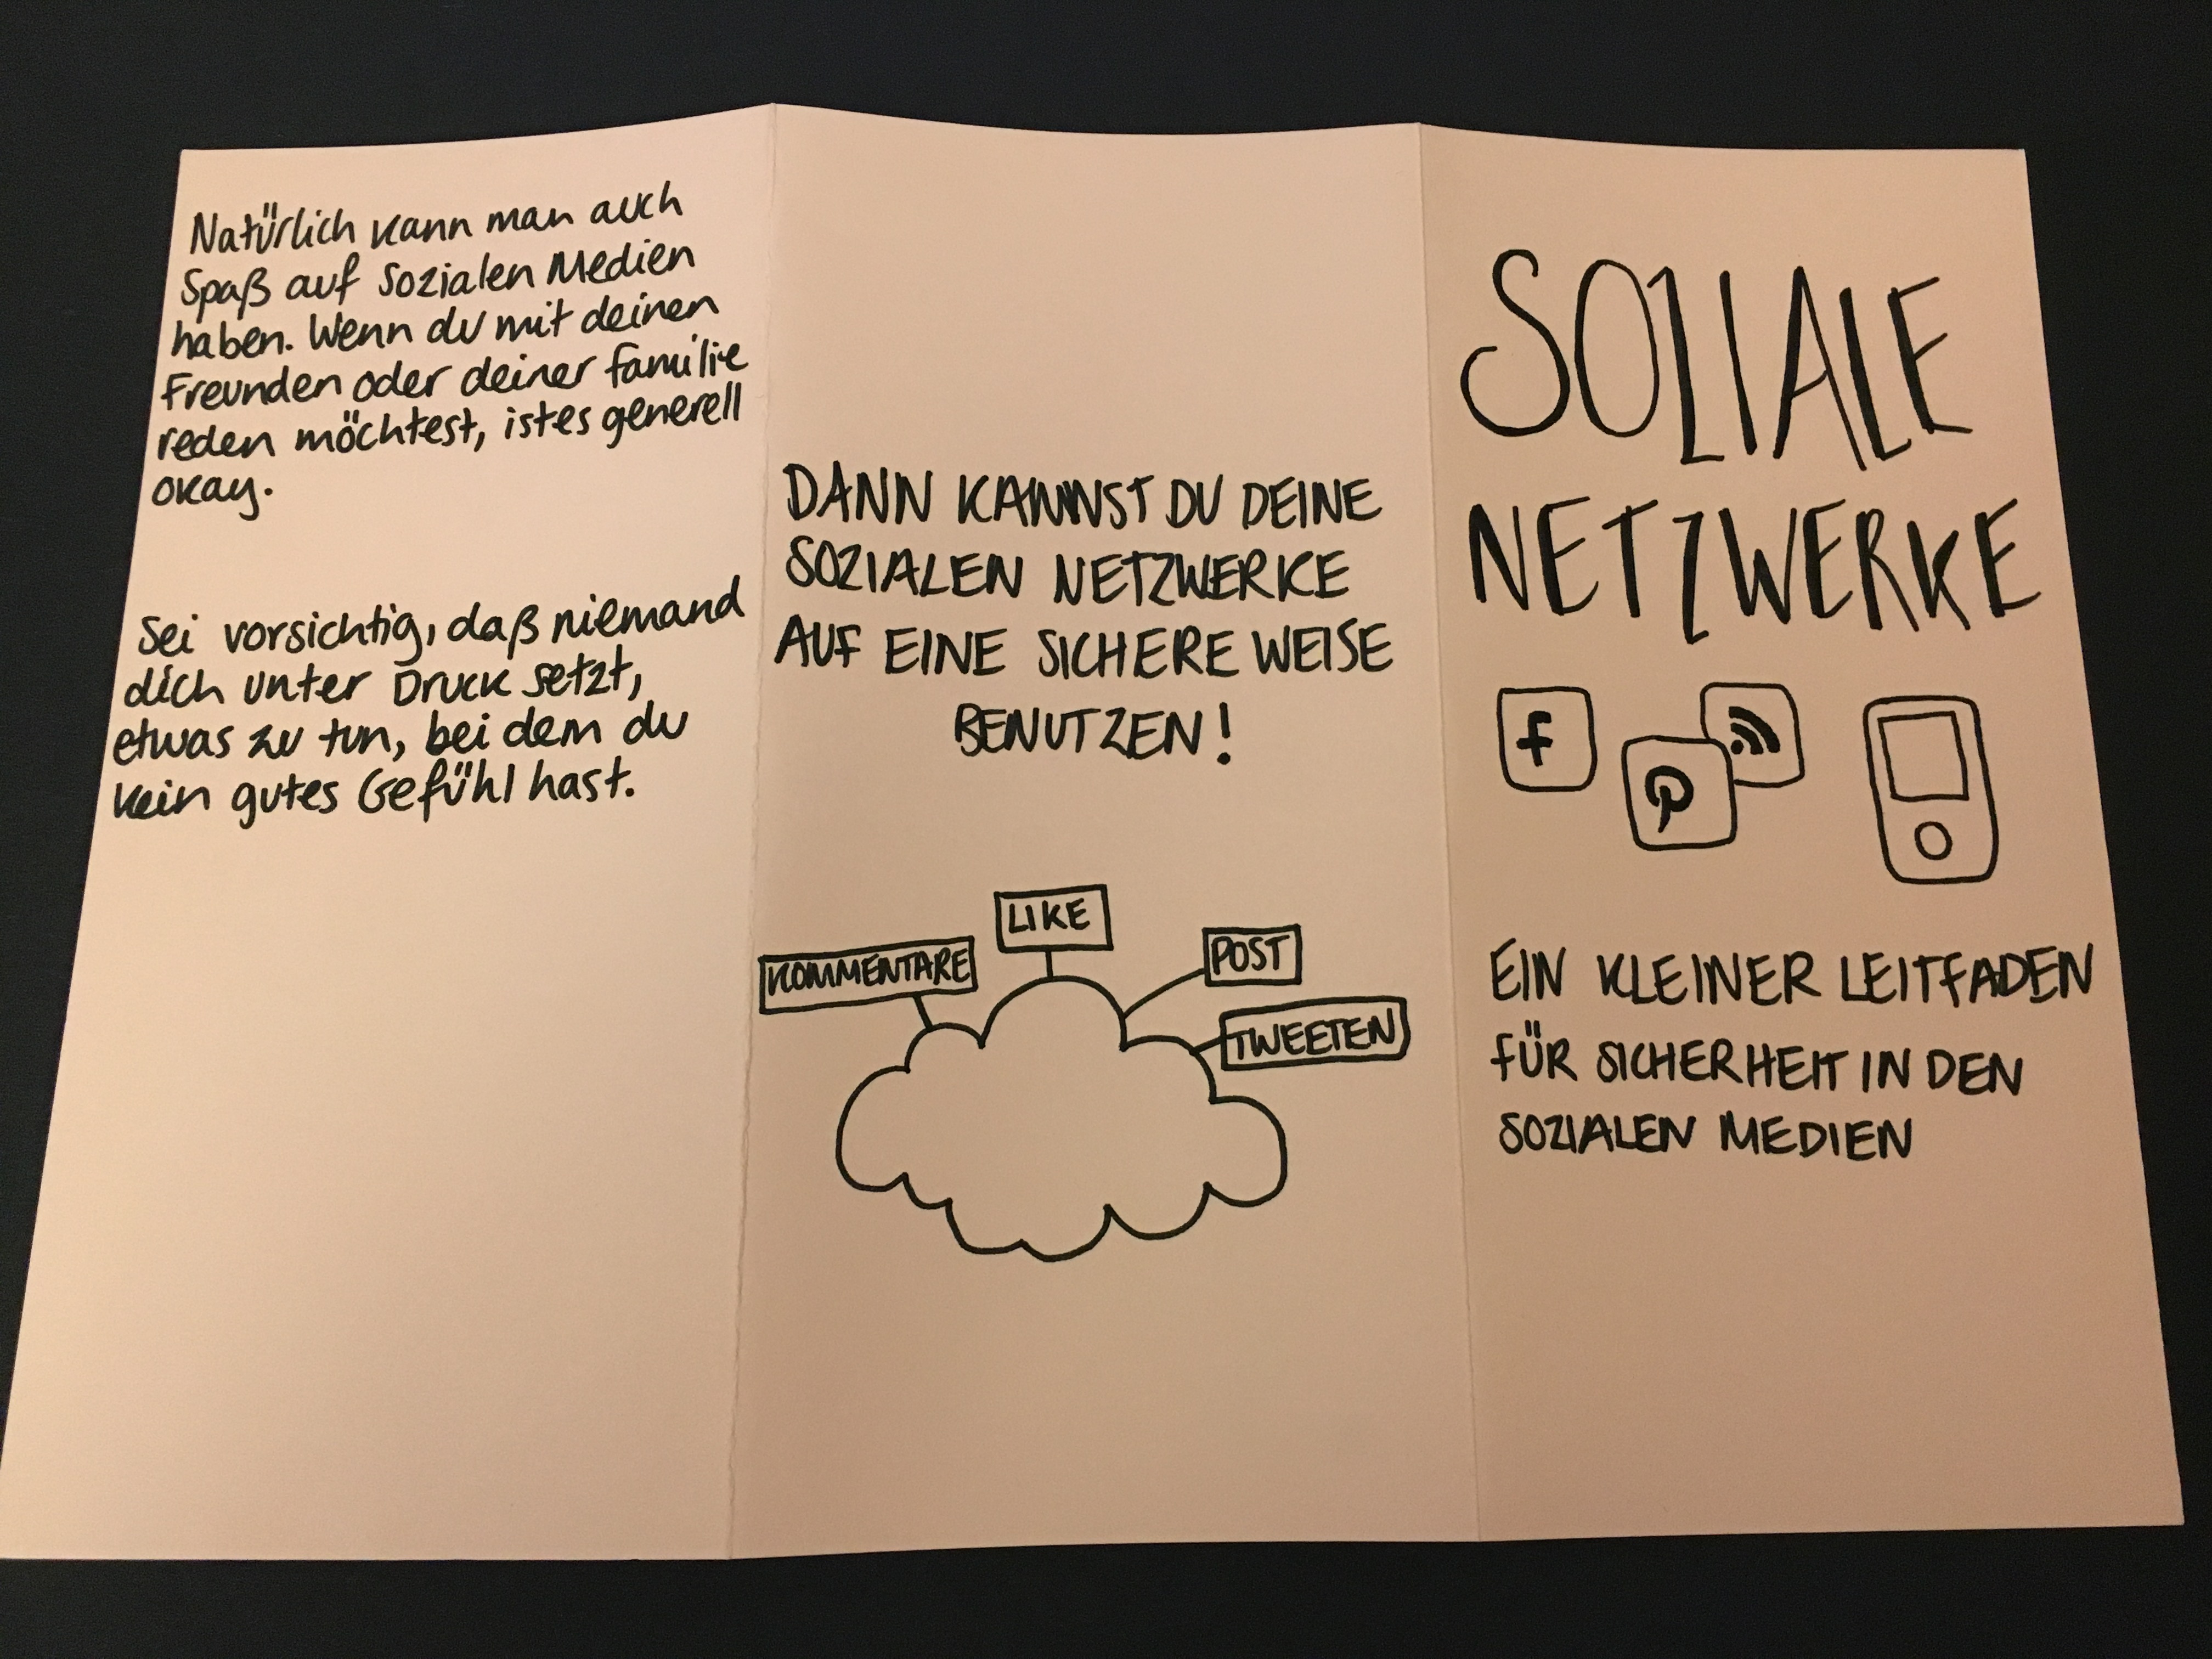 Natürlich kann man auch
Spaß auf Sozialen Medien
haben. Wenn du mit deinen
Freunden oder deiner familie
reden möchtest, ist es generell
okay.
Sei vorsichtig, daß niemand
dich unter Druck setzt,
etwas zu tun, bei dem du
kein gutes Gefühl hast.
DANN KANNST DU DEINE
SOZIALEN NETZWERKE
AUF EINE SICHERE WEISE
BENUTZEN!
LIKE
KOMMENTARE
POST
TWEETEN
SOZIALE
NETZWERKE
f
P
EIN KLEINER LEITFADEN
FÜR SICHERHEIT IN DEN
SOZIALEN MEDIEN